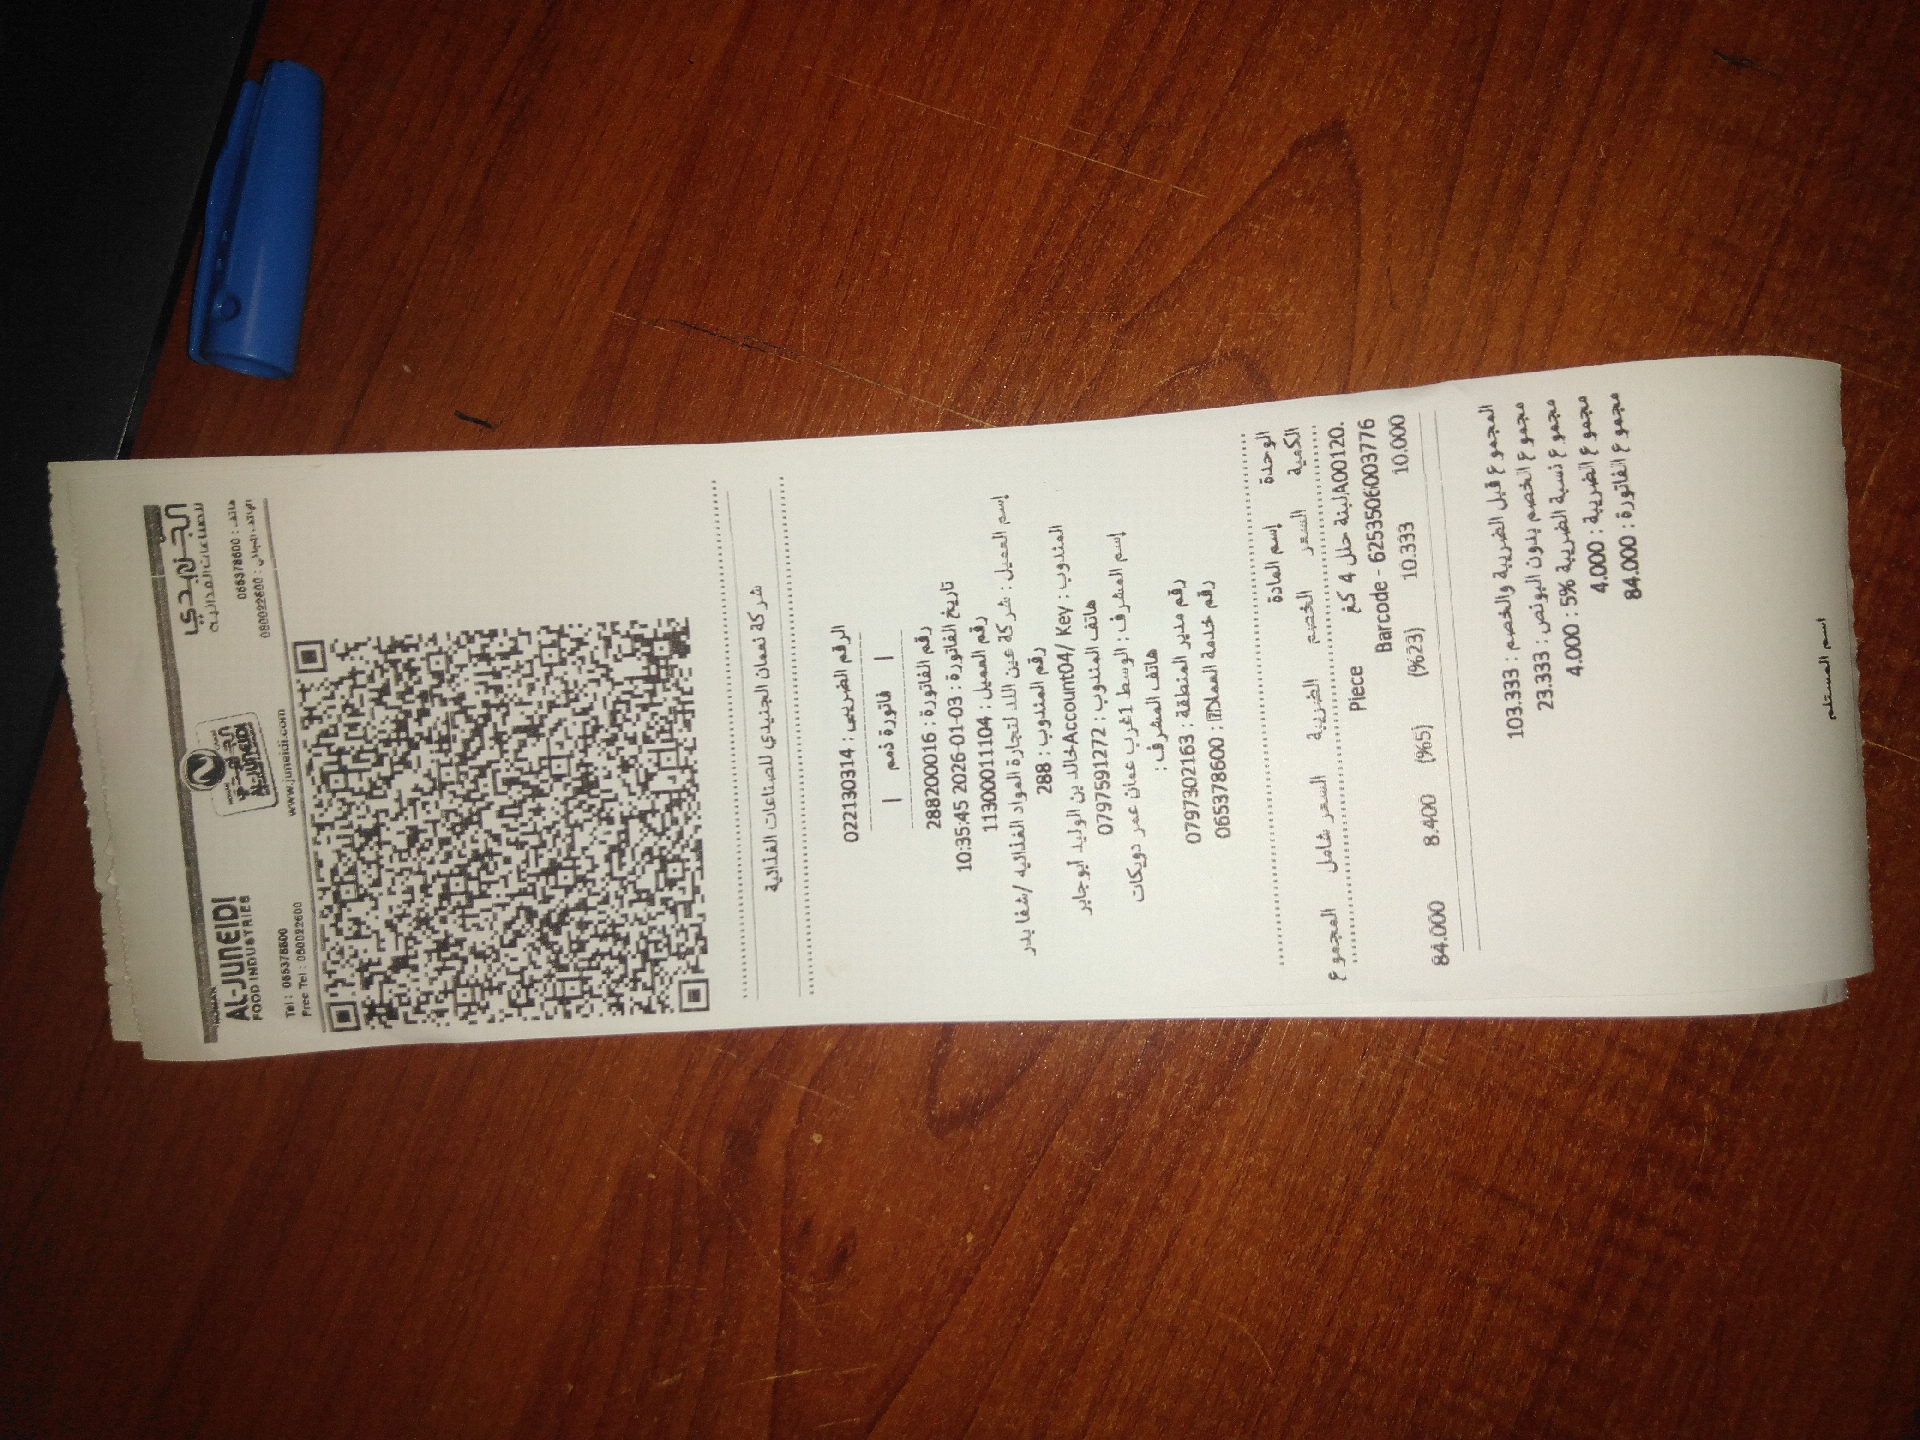 NOMAN
AL-JUNEIDI
FOOD INDUSTRIES
الجنيدي
للصناعات الغذائية
AL-JUNEIDI
Tel : 065378600
هاتف : 065378600
Free Tel : 080022600
الهاتف المجاني : 080022600
www.juneidi.com
شركة نعمان الجنيدي للصناعات الغذائية
الرقم الضريبي : 022130314
| فاتورة ذمم |
رقم الفاتورة : 2882000016
تاريخ الفاتورة : 2026-01-03 10:35:45
رقم العميل : 1130001104
إسم العميل : شركة عين اللد لتجارة المواد الغذائيه /شفا بدر
رقم المندوب : 288
المندوب : Account04/ Keyخالد بن الوليد أبوجابر
هاتف المندوب : 0797591272
إسم المشرف : الوسط 1غرب عمان عمر دويكات
هاتف المشرف :
رقم مدير المنطقة : 0797302163
رقم خدمة العملاء : 065378600
الوحدة إسم المادة
الكمية السعر الخصم الضريبة السعر شامل المجموع
A00120.لبنة حلل 4 كغ Piece
Barcode - 6253506003776
10.000 10.333 (%23) (%5) 8.400 84.000
المجموع قبل الضريبة والخصم : 103.333
مجموع الخصم بدون البونص : 23.333
مجموع نسبة الضريبة 5% : 4.000
مجموع الضريبة : 4.000
مجموع الفاتورة : 84.000
اسم المستلم